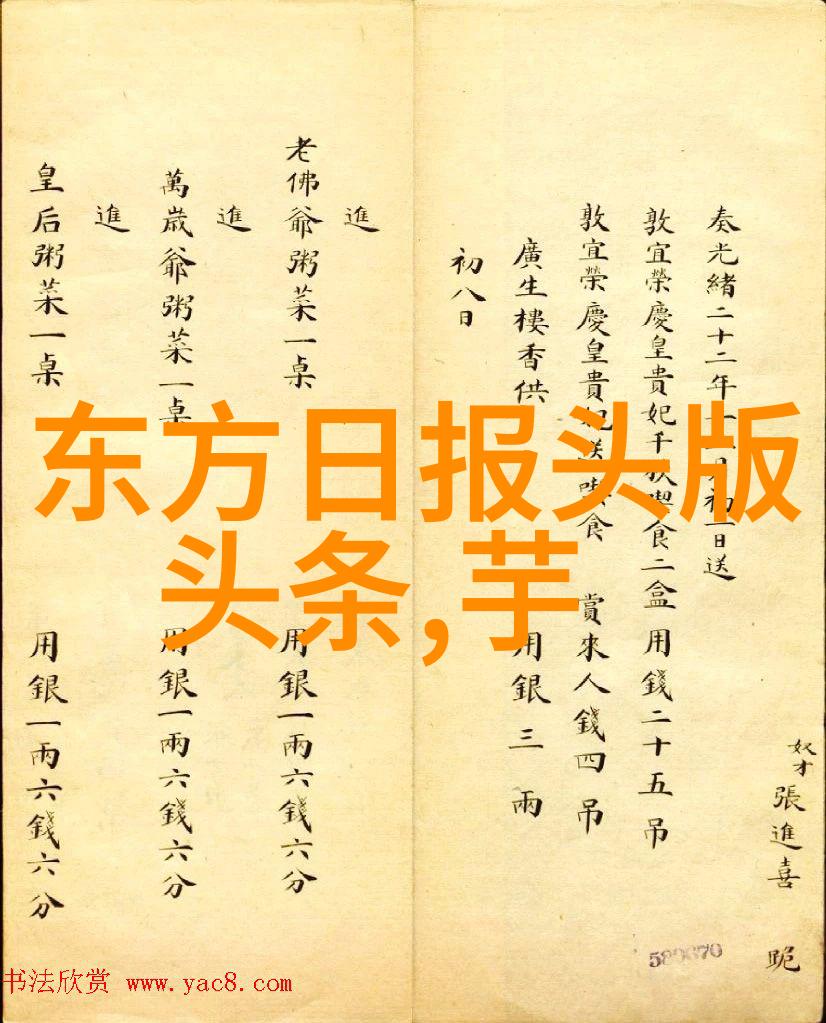 奴才張進喜 跪
奏光緒二十二年 月初一日送
敦宜榮慶皇貴妃千秋喫食二盒 用錢二十五吊
敦宜榮慶皇貴妃送喫食 賞來人錢四吊
廣生樓香供 用銀三兩
初八日
進
老佛爺粥菜一桌 用銀一兩六錢六分
進
萬歲爺粥菜一桌 用銀一兩六錢六分
進
皇后粥菜一桌 用銀一兩六錢六分
东方日报头版
头条,芋
书法欣赏 www.yac8.com